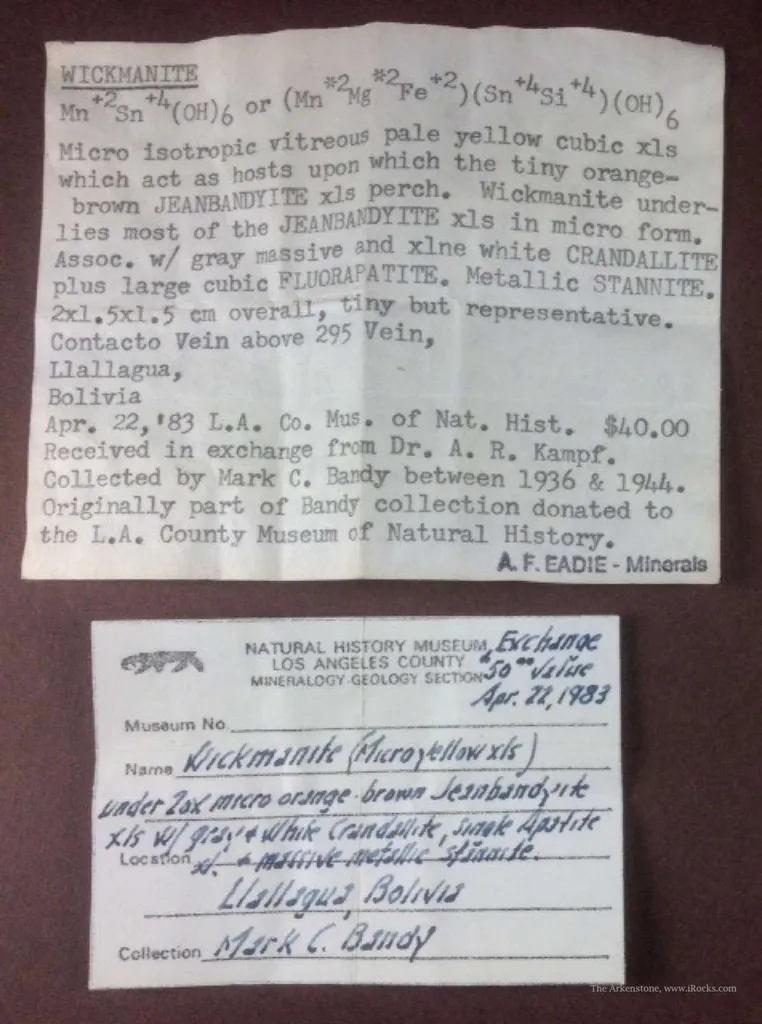 WICKMANITE
Mn⁺²Sn⁺⁴(OH)₆ or (Mn*²Mg*²Fe⁺²)(Sn⁺⁴Si⁺⁴)(OH)₆
Micro isotropic vitreous pale yellow cubic xls
which act as hosts upon which the tiny orange-
brown JEANBANDYITE xls perch. Wickmanite under-
lies most of the JEANBANDYITE xls in micro form.
Assoc. w/ gray massive and xlne white CRANDALLITE
plus large cubic FLUORAPATITE. Metallic STANNITE.
2x1.5x1.5 cm overall, tiny but representative.
Contacto Vein above 295 Vein,
Llallagua,
Bolivia
Apr. 22,'83 L.A. Co. Mus. of Nat. Hist. $40.00
Received in exchange from Dr. A. R. Kampf.
Collected by Mark C. Bandy between 1936 & 1944.
Originally part of Bandy collection donated to
the L.A. County Museum of Natural History.
A. F. EADIE - Minerals
NATURAL HISTORY MUSEUM, Exchange
LOS ANGELES COUNTY $50⁰⁰ value
MINERALOGY-GEOLOGY SECTION Apr. 22, 1983
Museum No.
Name Wickmanite (Micro yellow xls)
under 20x micro orange-brown Jeanbandyite
xls w/ gray & White Crandallite, single Apatite
Location xl. & massive metallic stannite.
Llallagua, Bolivia
Collection Mark C. Bandy
The Arkenstone, www.iRocks.com